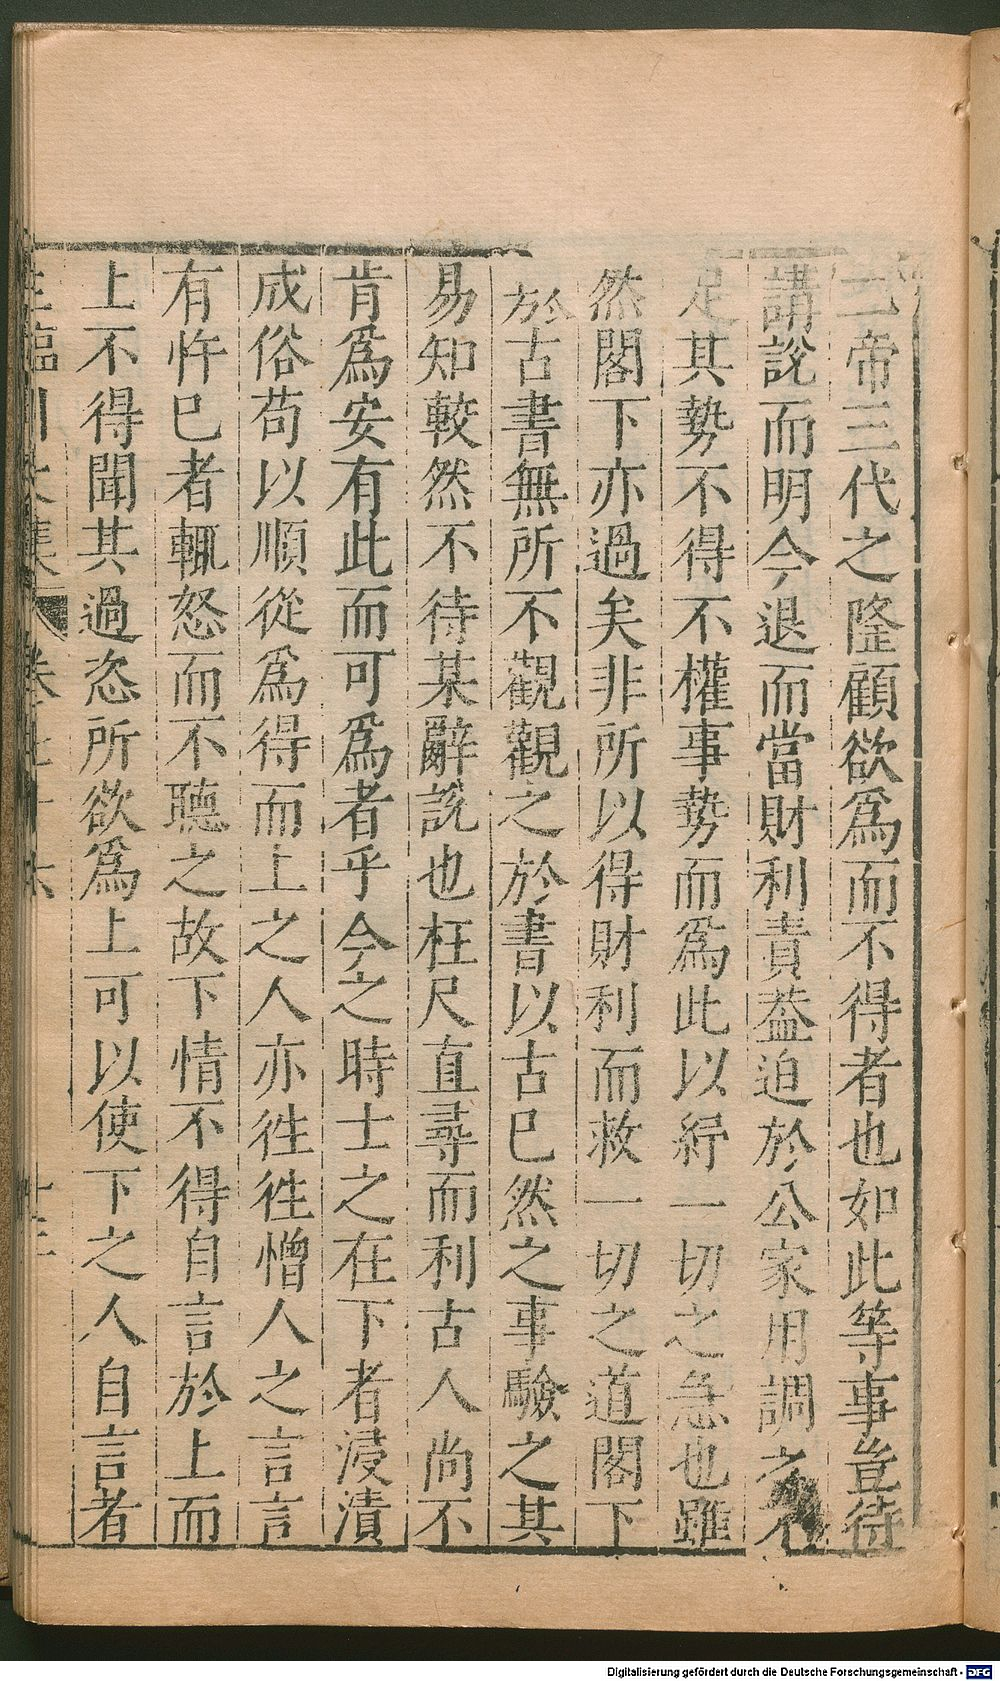 二帝三代之隆顧欲爲而不得者也如此等事豈待
講說而明今退而當財利責葢迫於公家用調之不
足其勢不得不權事勢而爲此以紓一切之急也雖
然閣下亦過矣非所以得財利而救一切之道閣下
於古書無所不觀觀之於書以古已然之事驗之其
易知較然不待某辭說也枉尺直尋而利古人尚不
肯爲安有此而可爲者乎今之時士之在下者浸漬
成俗苟以順從爲得而上之人亦徃徃憎人之言言
有忤已者輒怒而不聽之故下情不得自言於上而
上不得聞其過恣所欲爲上可以使下之人自言者
王臨川文集 卷七十六 十三
Digitalisierung gefördert durch die Deutsche Forschungsgemeinschaft - DFG